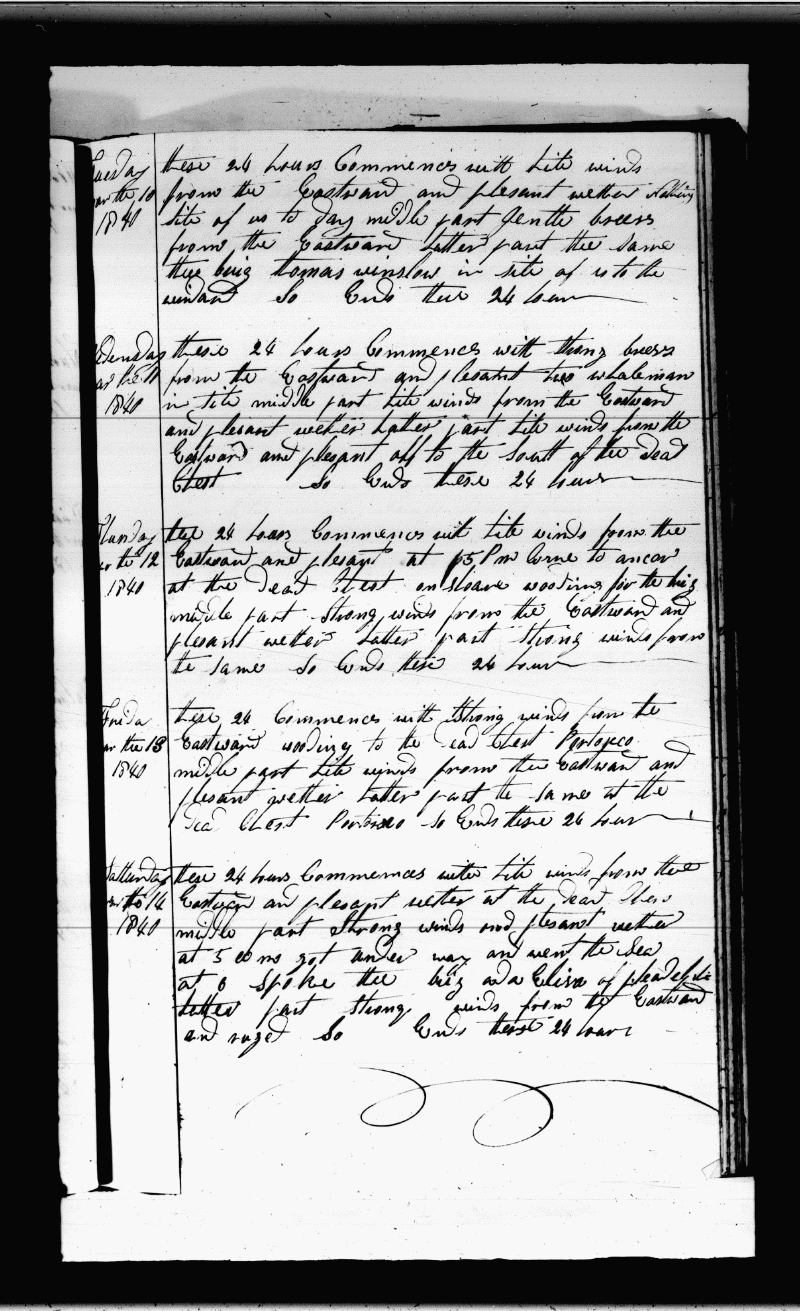 Tuesday these 24 hours Commences with lite winds
mar the 10 from the Eastward and plesant wether nothing
1840 site of us to day midle part Gentle breess
from the Eastward latter part the same
thee brig tomas winslow in site of us to the
windard So Ends these 24 hour
Wedensday these 24 hours Commences with strong breess
mar the 11 from the Eastward and plesant two whaleman
1840 in site midle part lite winds from the Eastward
and plesant wether Latter part lite winds from the
Eastward and plesant off to the South of the Dead
Chest So Ends these 24 hours
thursday these 24 hours Commences with lite winds from the
mar the 12 Eastward and plesant at 5 Pm Came to ancor
1840 at the Dead Chest on shoare wooding for the brig
midle part Strong winds from the Eastward and
plesant wether Latter part Strong winds from
the same So Ends these 24 hour
Frida these 24 Commences with Strong winds from the
mar the 13 Eastward wooding to the Dead Chest Portorico
1840 midle part lite winds from the Eastward and
plesant wether Latter part the same at the
Dead Chest Portorico So Ends these 24 hour
Satturday these 24 hours Commences with lite winds from thee
mar the 14 Eastward and plesant wether at the Dead Chest
1840 midle part Strong winds and plesant wether
at 5 got under way and went the Sea
at 6 Spoke thee brig Eliza of
Latter part Strong winds from the Eastward
and ruged So Ends these 24 hours